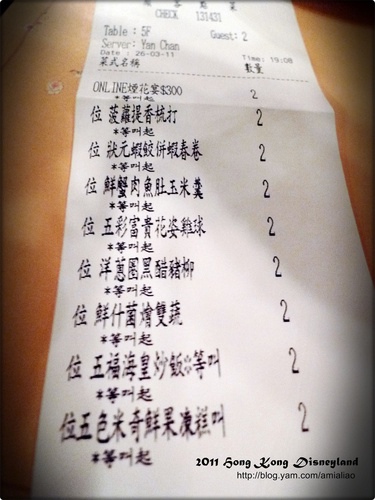 CHECK 131431
Table : 5F Guest: 2
Server: Yan Chan
Date : 26-03-11 Time: 19:08
菜式名稱 數量
ONLINE煙花宴$300 2
*等叫起
位 菠蘿提香梳打 2
*等叫起
位 狀元蝦餃併蝦春卷 2
*等叫起
位 鮮蟹肉魚肚玉米羹 2
*等叫起
位 五彩富貴花姿雞球 2
*等叫起
位 洋蔥圈黑醋豬柳 2
*等叫起
位 鮮什菌燴雙蔬 2
*等叫起
位 五福海皇炒飯*等叫 2
*等叫起
位五色米奇鮮果凍糕叫 2
*等叫起
2011 Hong Kong Disneyland
http://blog.yam.com/amialiao